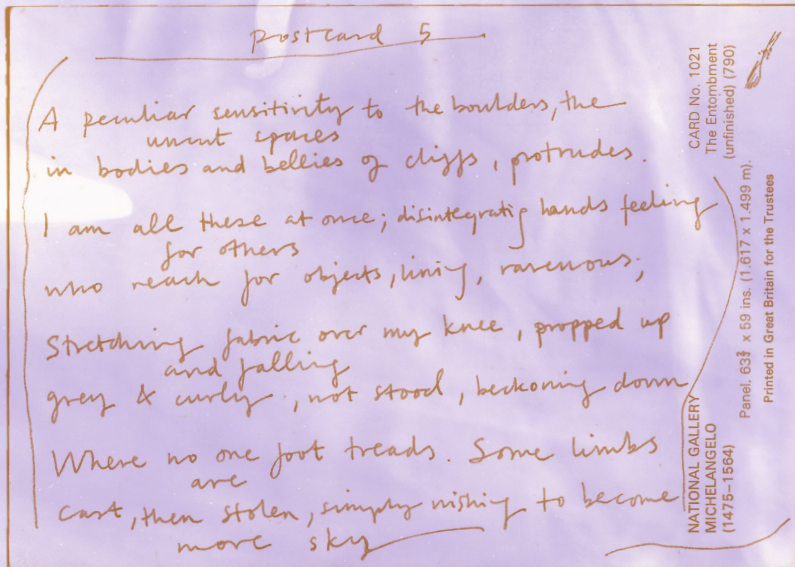 Postcard 5
A peculiar sensitivity to the boulders, the
uncut spaces
in bodies and bellies of cliffs, protrudes.
I am all these at once; disintegratig hands feeling
for others
who reach for objects, living, ravenous,
Stretching fabric over my knee, propped up
and falling
grey & curly, not stood, beckoning down
Where no one foot treads. Some limbs
are
cast, then stolen, simply wishing to become
more sky
CARD No. 1021
The Entombment
(unfinished) (790)
NATIONAL GALLERY
MICHELANGELO
(1475–1564)
Panel. 63⅝ x 59 ins. (1.617 x 1.499 m).
Printed in Great Britain for the Trustees